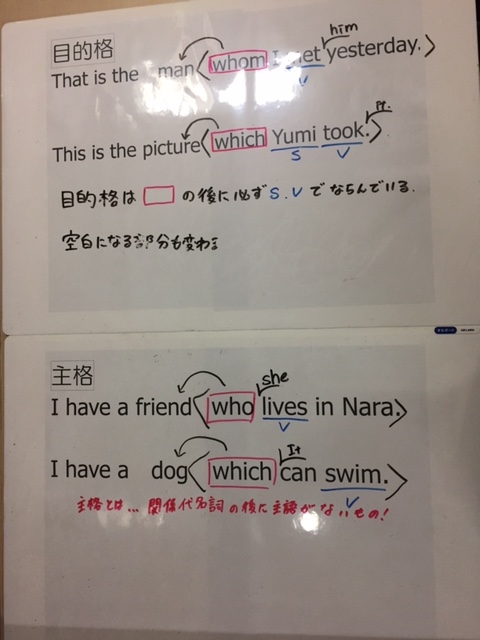 目的格
him
That is the man〈whom I met yesterday.〉
V
it.
This is the picture〈which Yumi took.〉
S V
目的格は□の後に必ずS.Vでならんでいる.
空白になる部分も変わる
主格
she
I have a friend〈who lives in Nara.〉
V
It
I have a dog〈which can swim.〉
V
主格とは…関係代名詞の後に主語がないもの!